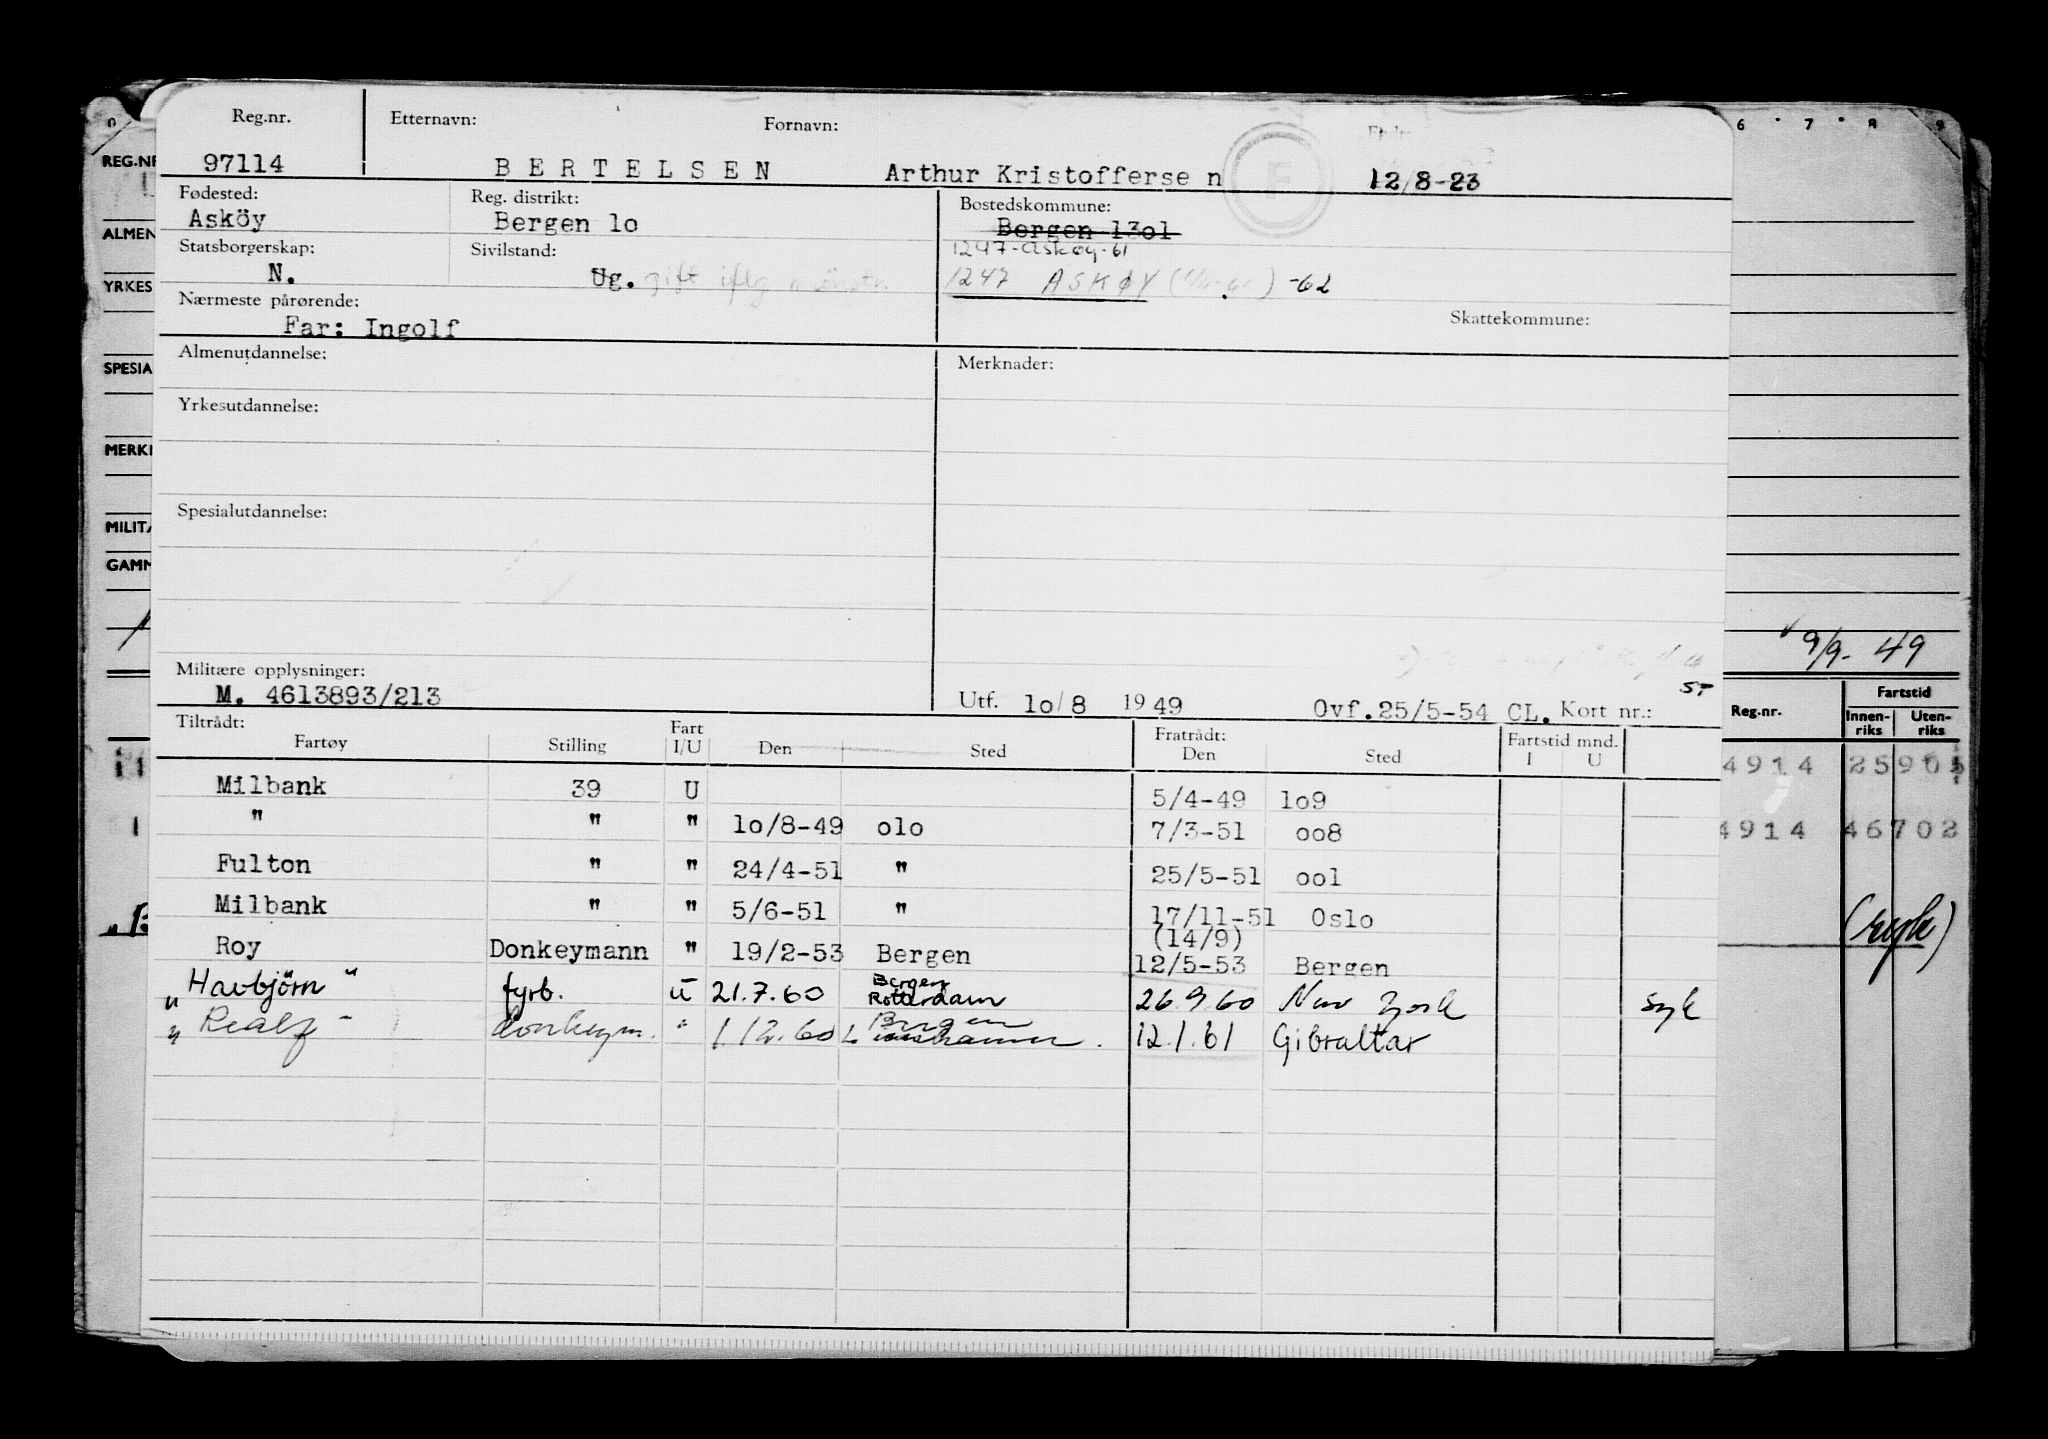 Reg.nr. Etternavn: Fornavn:
97114 BERTELSEN Arthur Kristofferse n F 12/8-23
Fødested: Reg. distrikt: Bostedskommune:
Asköy Bergen lo Bergen 13ol
Statsborgerskap: Sivilstand: 1247-Askøy-61
N. Ug. gift iflg mönstr. 1247 ASKØY -62
Nærmeste pårørende:
Far: Ingolf Skattekommune:
Almenutdannelse: Merknader:
Yrkesutdannelse:
Spesialutdannelse:
Militære opplysninger:
M. 4613893/213 Utf. lo/8 1949 Ovf.25/5-54 CL. Kort nr.: 5-
Tiltrådt: Fart Fratrådt: Fartstid mnd.
Fartøy Stilling I/U Den Sted Den Sted I U
Milbank 39 U 5/4-49 lo9
" " " lo/8-49 olo 7/3-51 oo8
Fulton " " 24/4-51 " 25/5-51 ool
Milbank " " 5/6-51 " 17/11-51 Oslo
(14/9)
Roy Donkeymann " 19/2-53 Bergen 12/5-53 Bergen
Bergen
"Havbjörn" fyrb. U 21.7.60 Rotterdam 26.9.60 New York syk
Bergen
"Realf" donkeym. " 1.12.60 12.1.61 Gibraltar
0 6 7 8 9
REG.NR
ALMEN
YRKES
SPESIA
MERKN
MILITÆ
GAMM
9/9- 49
Reg.nr. Fartstid
Innen-riks Uten-riks
4914 25905
4914 46702